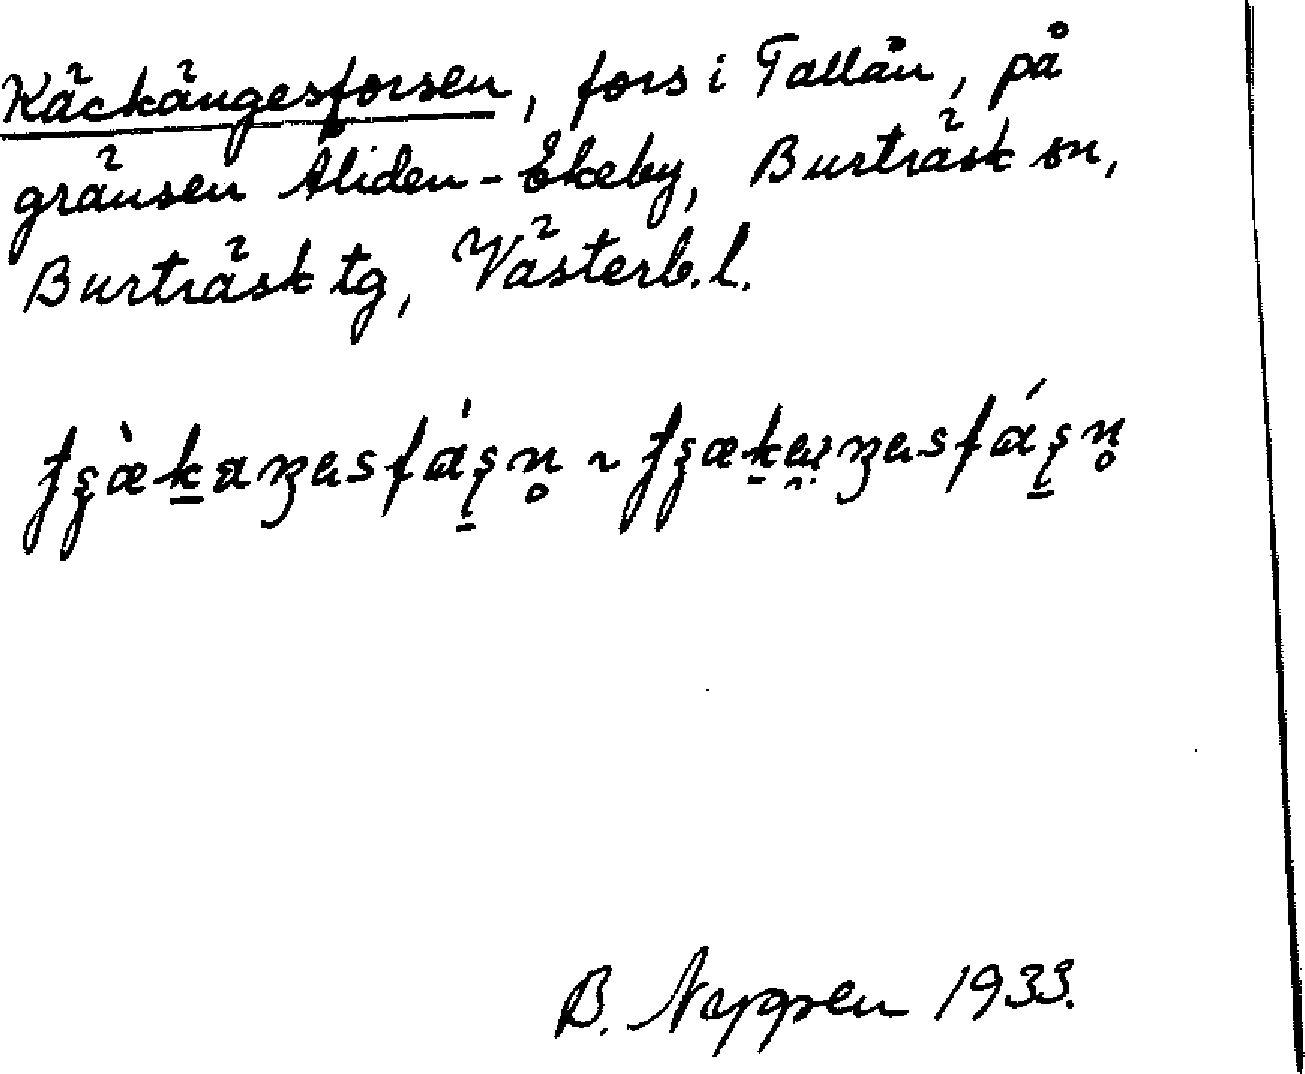 Käckängesforsen, fors i Tallån, på
gränsen Åliden - Ekeby, Burträsk sn,
Burträsk tg, Västerb. l.
B. Nygren 1933.